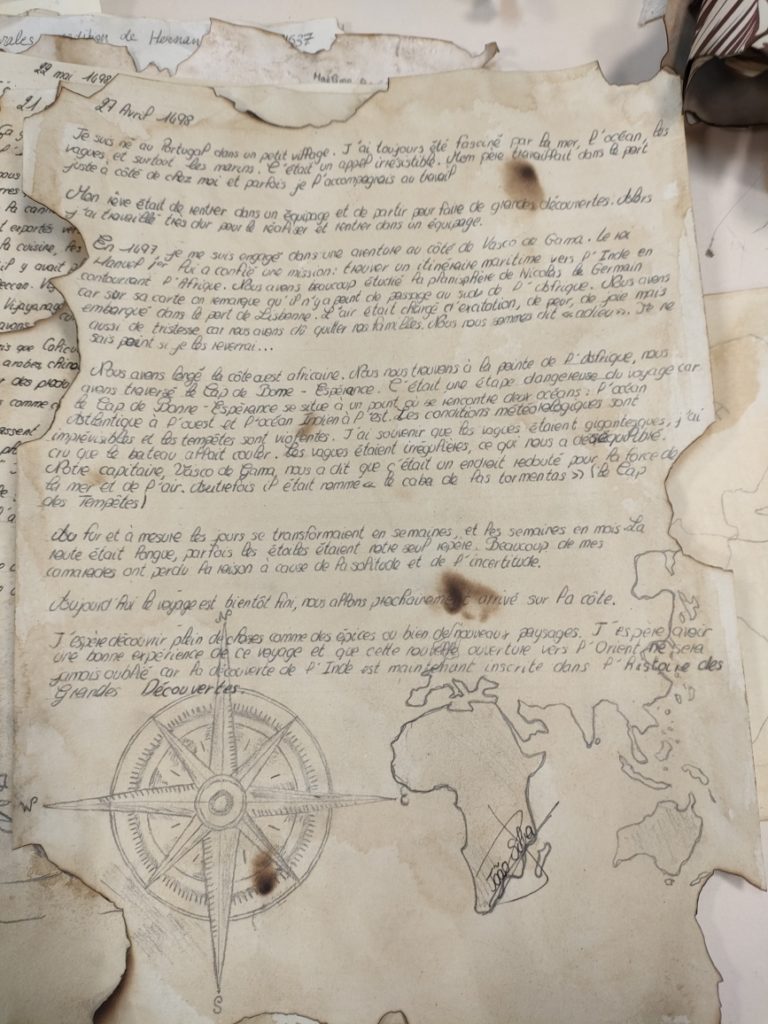 de Hernan
22 mai 1498
21
27 Avril 1498
Je suis né au Portugal dans un petit village. J'ai toujours été fasciné par la mer, l'océan, les
vagues, et surtout les marins. C'était un appel irrésistible. Mon père travaillait dans le port
juste à côté de chez moi et parfois je l'accompagnais au travail
Mon rêve était de rentrer dans un équipage et de partir pour faire de grandes découvertes. Alors
j'ai travaillé très dur pour le réaliser et rentrer dans un équipage.
En 1497, je me suis engagé dans une aventure au côté de Vasco de Gama. Le roi
Manuel 1er lui a confié une mission: trouver un itinéraire maritime vers l'Inde en
contournant l'Afrique. Nous avons beaucoup étudié la planisphère de Nicolas le Germain
car sur sa carte on remarque qu'il n'y a point de passage au sud de l'Afrique. Nous avons
embarqué dans le port de Lisbonne. L'air était chargé d'excitation, de peur, de joie mais
aussi de tristesse, car nous avons dû quitter nos familles. Nous nous sommes dit « adieu ». Je ne
sais point si je les reverrai...
Nous avons longé la côte ouest africaine. Nous nous trouvons à la pointe de l'Afrique, nous
avons traversé le Cap de Bonne - Espérance. C'était une étape dangereuse du voyage car
le Cap de Bonne - Espérance se situe à un point où se rencontre deux océans : l'océan
Atlantique à l'ouest et l'océan Indien à l'est. Les conditions météorologiques sont
imprévisibles et les tempêtes sont violentes. J'ai souvenir que les vagues étaient gigantesques, j'ai
cru que le bateau allait couler. Les vagues étaient irrégulières, ce qui nous a déséquilibré.
Notre capitaine, Vasco de Gama, nous a dit que c'était un endroit redouté pour la force de
la mer et de l'air. Autrefois il était nommé « le cabo de las tormentas » (le Cap
des Tempêtes)
Au fur et à mesure les jours se transformaient en semaines, et les semaines en mois La
route était longue, parfois les étoiles étaient notre seul repère. Beaucoup de mes
camarades ont perdu la raison à cause de la solitude et de l'incertitude.
Aujourd'hui le voyage est bientôt fini, nous allons prochainement arrivé sur la côte.
J'espère découvrir plein de choses comme des épices ou bien de nouveaux paysages. J'espère avoir
une bonne expérience de ce voyage et que cette nouvelle ouverture vers l'Orient ne sera
jamais oublié car la découverte de l'Inde est maintenant inscrite dans l'Histoire des
Grandes Découvertes.
N
W
E
João Silva
S